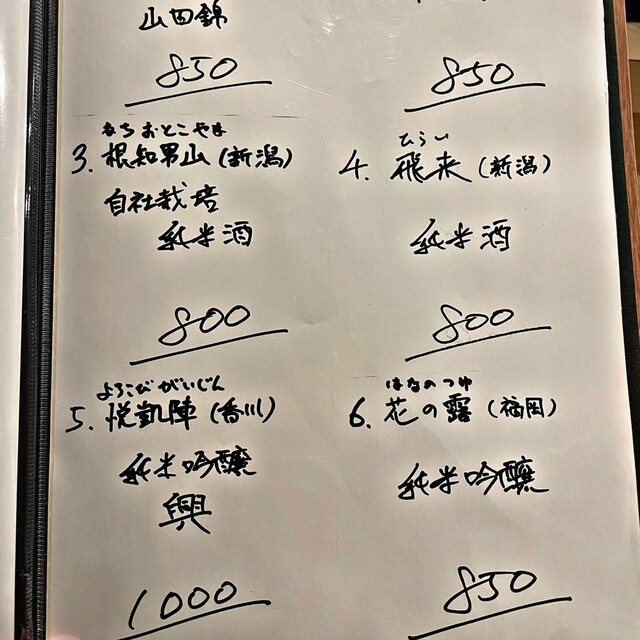 山田錦
850
850
ねちおとこやま
3. 根知男山(新潟)
自社栽培
純米酒
800
ひらい
4. 飛来(新潟)
純米酒
800
よろこびがいじん
5. 悦凱陣(香川)
純米吟醸
興
1000
はなのつゆ
6. 花の露(福岡)
純米吟醸
850